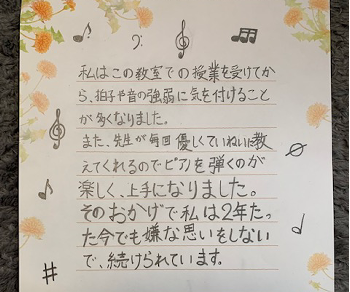 私はこの教室での授業を受けてか
ら、拍子や音の強弱に気を付けること
が多くなりました。
また、先生が毎回優しくていねいに教
えてくれるのでピアノを弾くのが
楽しく、上手になりました。
そのおかげで私は2年たっ
た今でも嫌な思いをしない
で、続けられています。